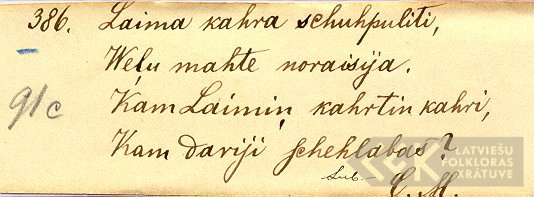 386. Laima kahra schuhpuliti,
Weļu mahte noraisija.
91c
Kam Laimiņ kahrtin kahri,
Kam dariji schehlabas?
LATVIEŠU
FOLKLORAS
KRĀTUVE